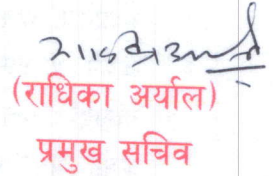 (राधिका अर्याल)
प्रमुख सचिव